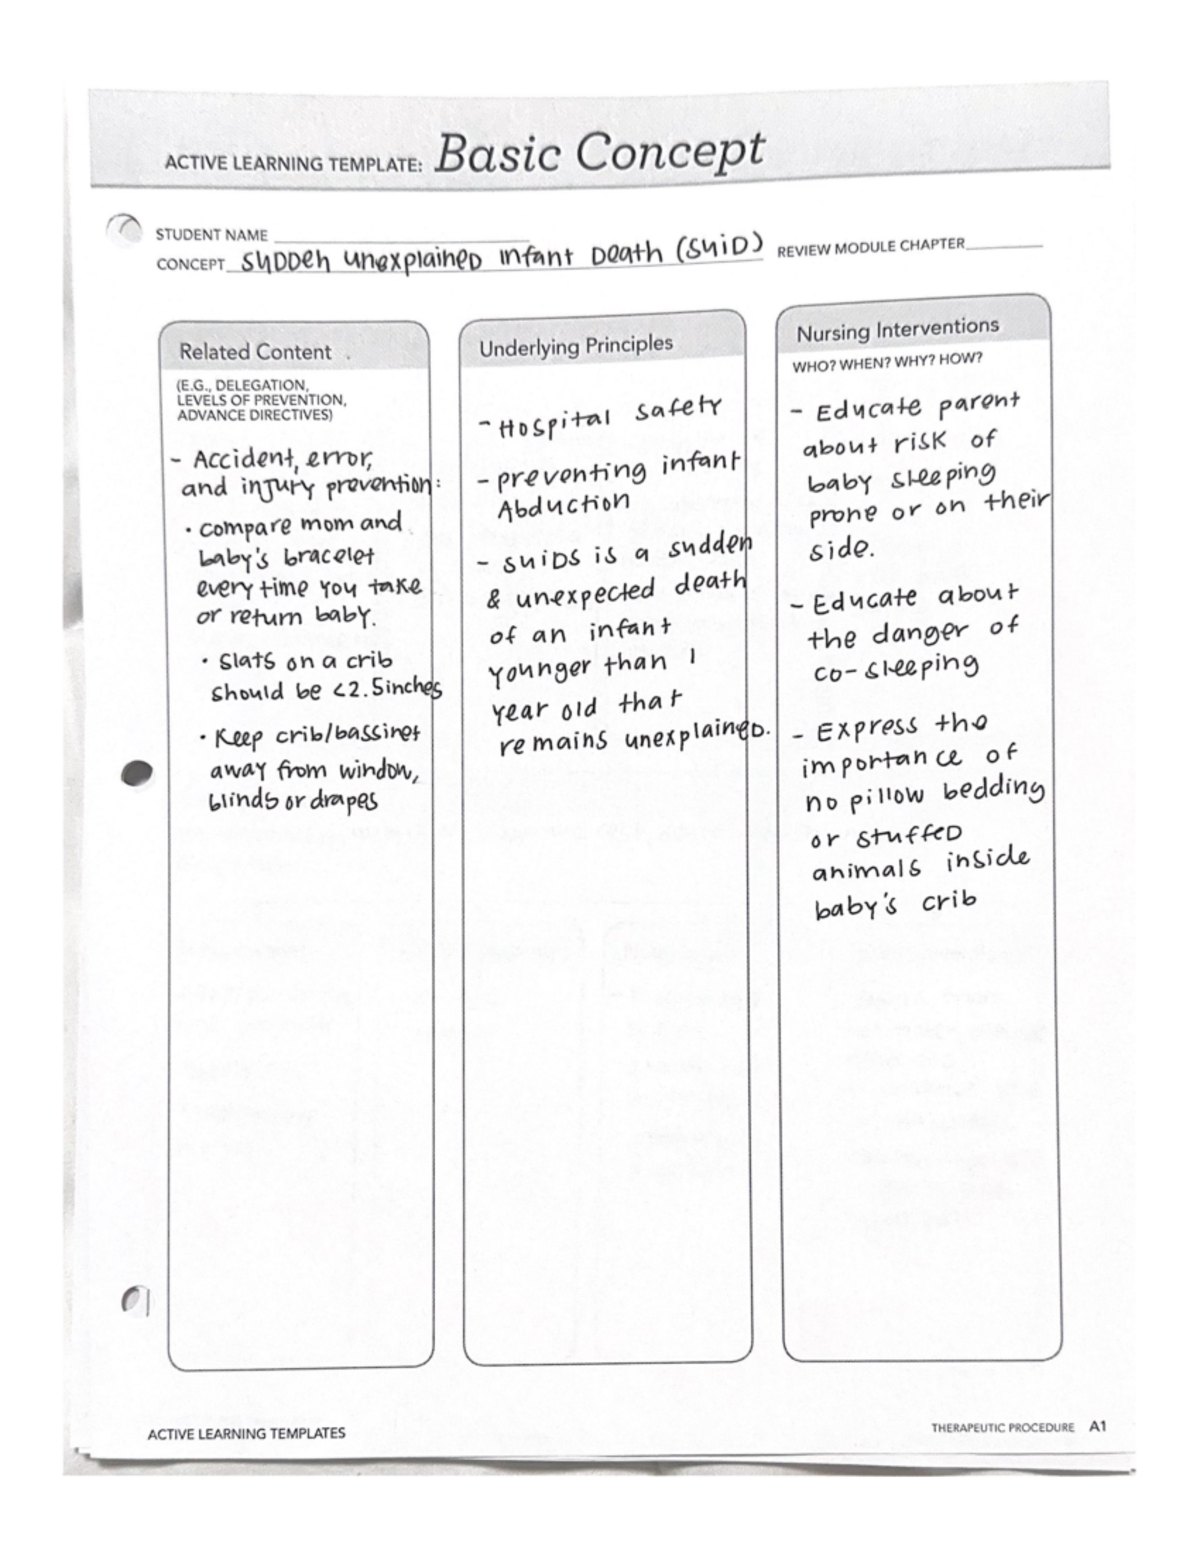 ACTIVE LEARNING TEMPLATE: Basic Concept
STUDENT NAME
CONCEPT Sudden unexplained Infant Death (SUID) REVIEW MODULE CHAPTER
Related Content
(E.G., DELEGATION,
LEVELS OF PREVENTION,
ADVANCE DIRECTIVES)
- Accident, error,
and injury prevention:
• compare mom and
baby's bracelet
every time you take
or return baby.
• Slats on a crib
should be <2.5inches
• Keep crib/bassinet
away from window,
blinds or drapes
Underlying Principles
- Hospital safety
- preventing infant
Abduction
- SUIDS is a sudden
& unexpected death
of an infant
younger than 1
year old that
remains unexplained.
Nursing Interventions
WHO? WHEN? WHY? HOW?
- Educate parent
about risk of
baby sleeping
prone or on their
side.
- Educate about
the danger of
co-sleeping
- Express the
importance of
no pillow bedding
or stuffed
animals inside
baby's crib
ACTIVE LEARNING TEMPLATES
THERAPEUTIC PROCEDURE A1